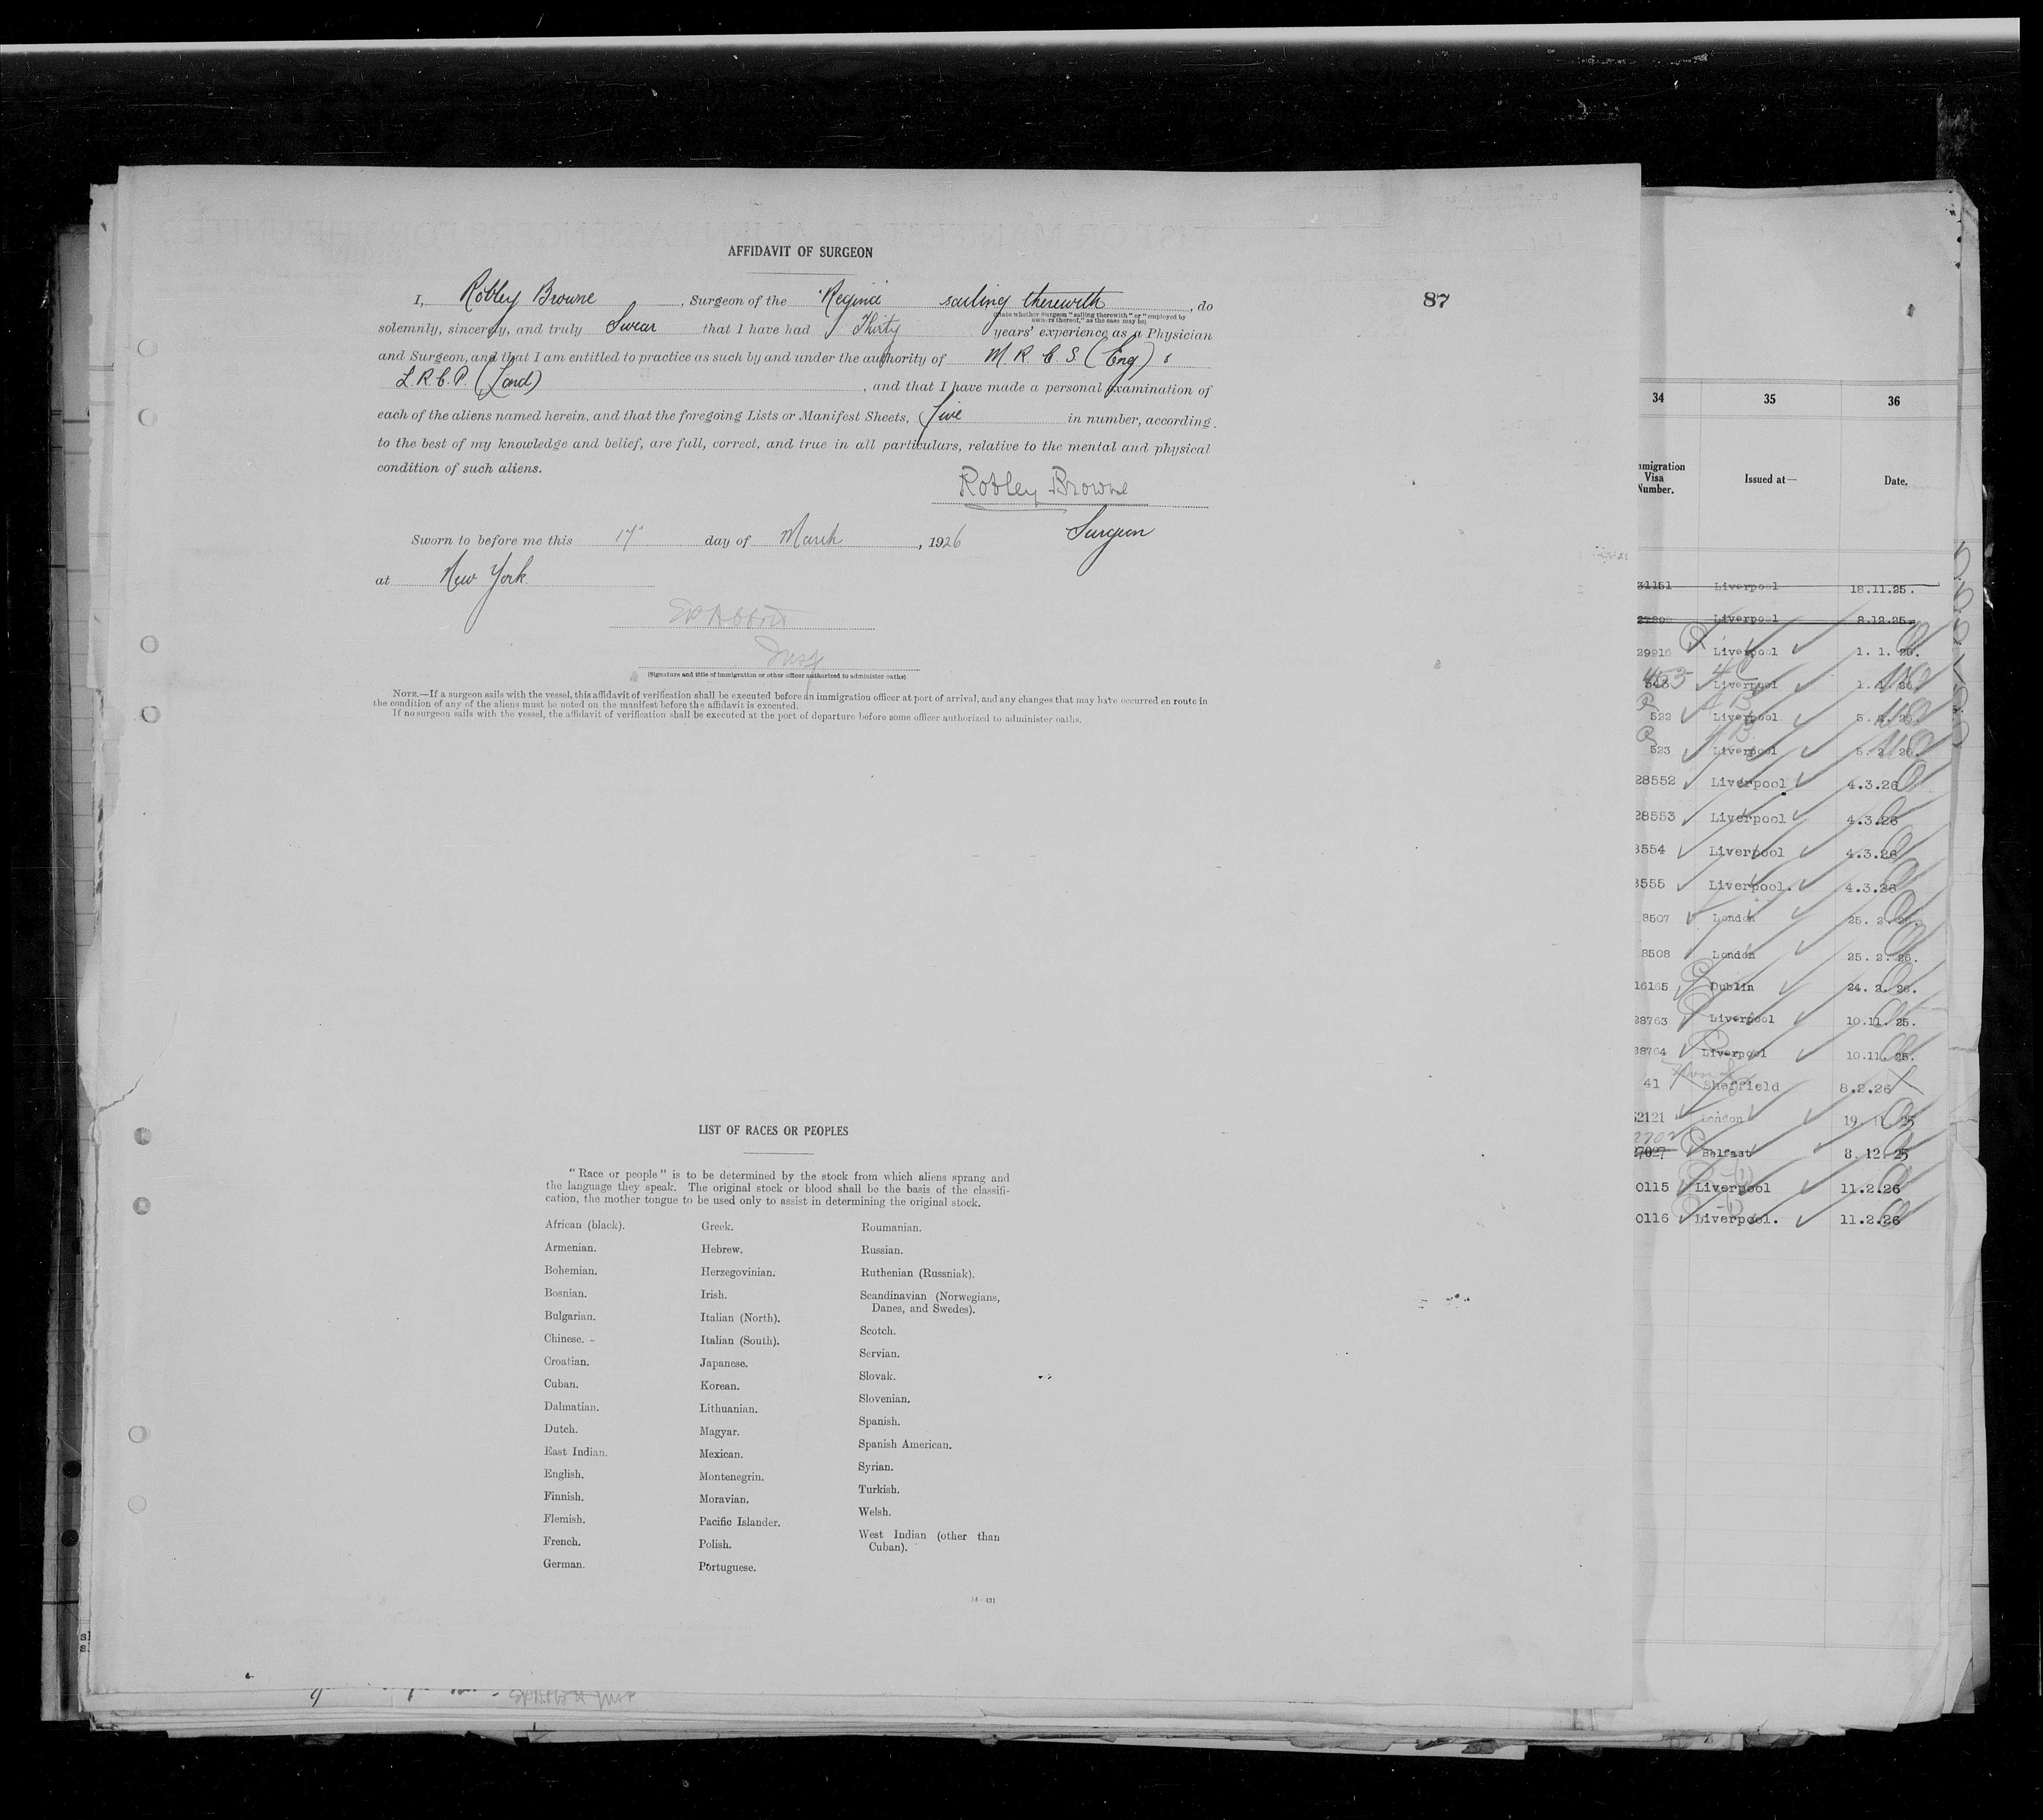 AFFIDAVIT OF SURGEON
I, Robley Browne, Surgeon of the "Regina" sailing therewith, do
(State whether Surgeon "sailing therewith" or "employed by
owners thereof," as the case may be)
solemnly, sincerely, and truly Swear that I have had Thirty years' experience as a Physician
and Surgeon, and that I am entitled to practice as such by and under the authority of M.R.C.S. (Eng) &
L.R.C.P. (Lond), and that I have made a personal examination of
each of the aliens named herein, and that the foregoing Lists or Manifest Sheets, Five in number, according
to the best of my knowledge and belief, are full, correct, and true in all particulars, relative to the mental and physical
condition of such aliens.
Robley Browne
Surgeon
Sworn to before me this 17 day of March, 1926
at New York
Insp
(Signature and title of immigration or other officer authorized to administer oaths)
NOTE.—If a surgeon sails with the vessel, this affidavit of verification shall be executed before an immigration officer at port of arrival, and any changes that may have occurred en route in
the condition of any of the aliens must be noted on the manifest before the affidavit is executed.
If no surgeon sails with the vessel, the affidavit of verification shall be executed at the port of departure before some officer authorized to administer oaths.
87
LIST OF RACES OR PEOPLES
"Race or people" is to be determined by the stock from which aliens sprang and
the language they speak. The original stock or blood shall be the basis of the classifi-
cation, the mother tongue to be used only to assist in determining the original stock.
African (black).
Armenian.
Bohemian.
Bosnian.
Bulgarian.
Chinese.
Croatian.
Cuban.
Dalmatian.
Dutch.
East Indian.
English.
Finnish.
Flemish.
French.
German.
Greek.
Hebrew.
Herzegovinian.
Irish.
Italian (North).
Italian (South).
Japanese.
Korean.
Lithuanian.
Magyar.
Mexican.
Montenegrin.
Moravian.
Pacific Islander.
Polish.
Portuguese.
Roumanian.
Russian.
Ruthenian (Russniak).
Scandinavian (Norwegians,
Danes, and Swedes).
Scotch.
Servian.
Slovak.
Slovenian.
Spanish.
Spanish American.
Syrian.
Turkish.
Welsh.
West Indian (other than
Cuban).
14-431
34 35 36
mmigration
Visa
Number.
Issued at—
Date.
31151 Liverpool 18.11.25.
Liverpool 8.12.25.
29916 Liverpool 1. 1. 26.
Liverpool
522 Liverpool
523 Liverpool 5. 2. 26.
28552 Liverpool 4.3.26
28553 Liverpool 4.3.26
8554 Liverpool 4.3.26
8555 Liverpool. 4.3.26
8507 London 25. 2. 26.
8508 London 25. 2. 26.
16165 Dublin 24. 2. 26.
28763 Liverpool 10.11.25.
28764 Liverpool 10.11.25.
41 Sheffield 8.2.26
2121 London 19. 11. 25
27027 Belfast 8. 12. 25
0115 Liverpool 11.2.26
0116 Liverpool. 11.2.26